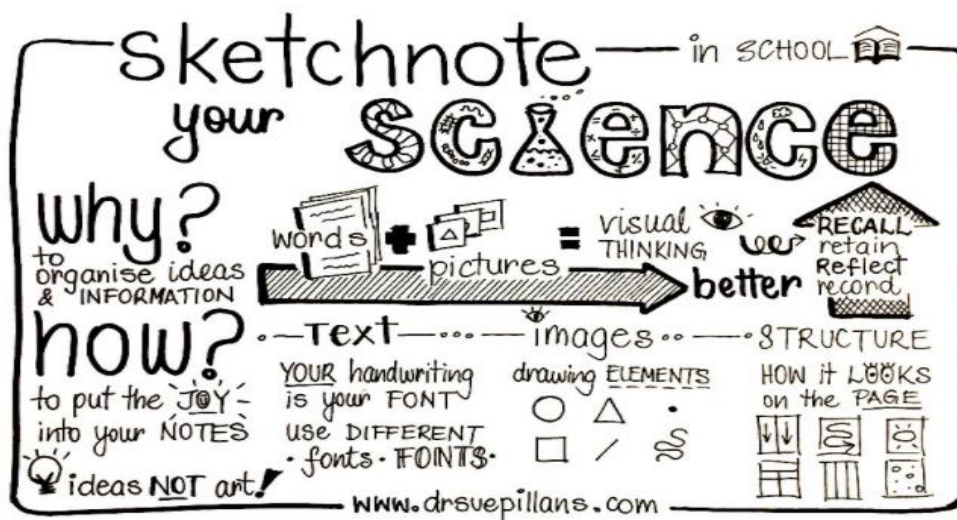 sketchnote in SCHOOL
your science
why?
to
organise ideas
& INFORMATION
words + pictures = visual THINKING
better
RECALL
retain
Reflect
record
how?
to put the JOY
into your NOTES
ideas NOT art!
Text
YOUR handwriting
is your FONT
use DIFFERENT
• fonts • FONTS •
images
drawing ELEMENTS
STRUCTURE
HOW it LOOKS
on the PAGE
www.drsuepillans.com